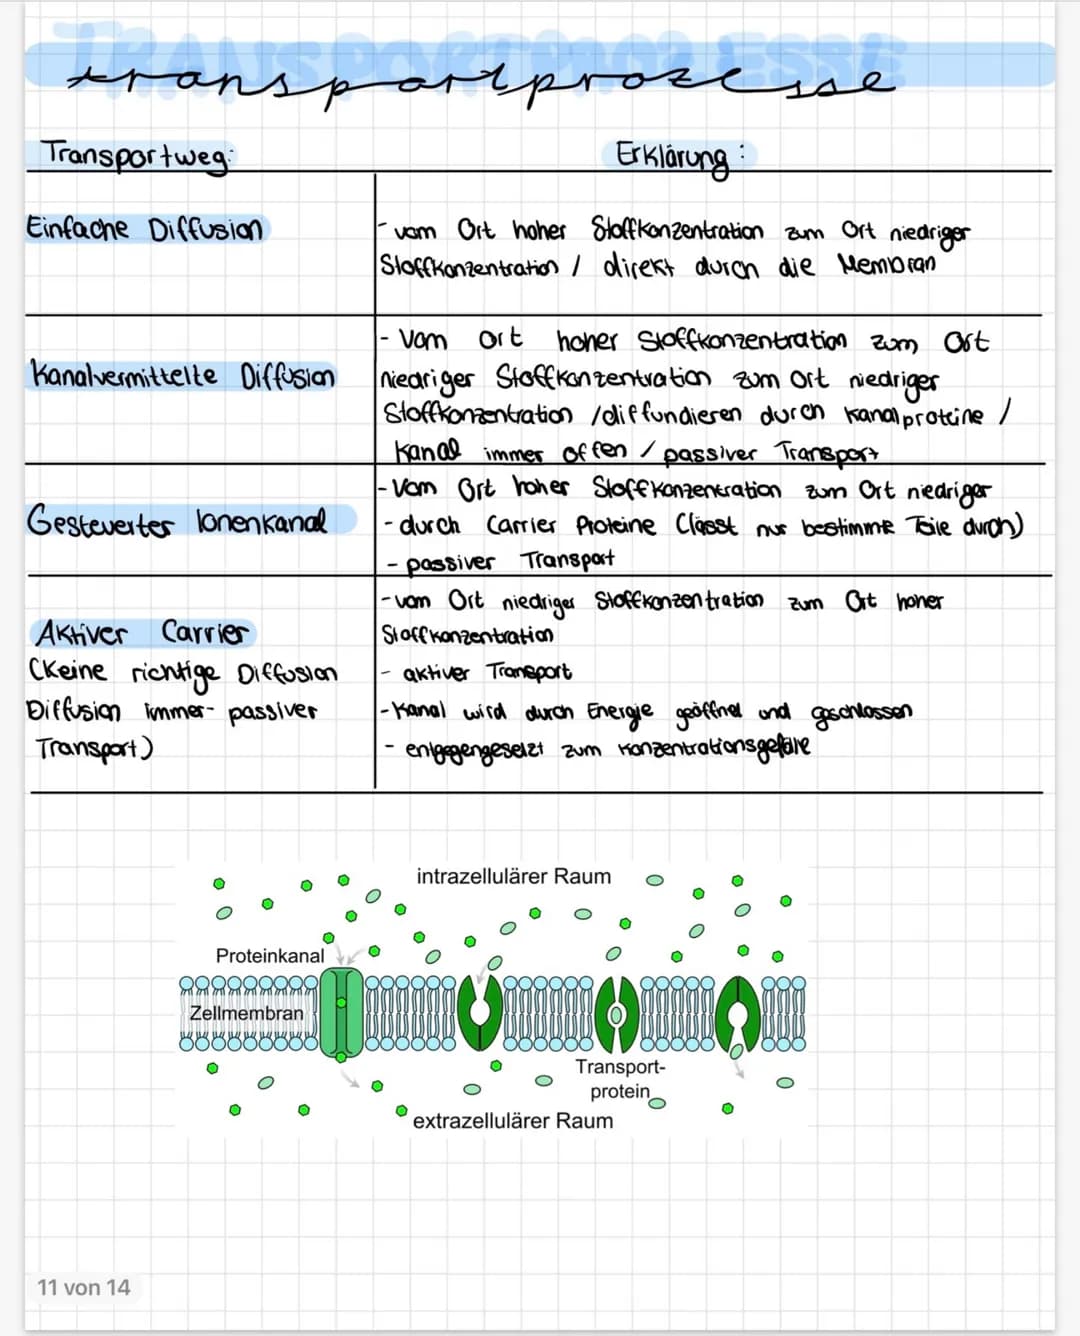 TRANSPORTPROZESSE
transportprozesse
Transportweg:
Erklärung:
Einfache Diffusion
- vom Ort hoher Stoffkonzentration zum Ort niedriger
Stoffkonzentration / direkt durch die Membran
Kanalvermittelte Diffusion
- Vom Ort hoher Stoffkonzentration zum Ort
niedriger Stoffkonzentration zum Ort niedriger
Stoffkonzentration /diffundieren durch Kanalproteine /
Kanal immer offen / passiver Transport
Gesteuerter Ionenkanal
- Vom Ort hoher Stoffkonzentration zum Ort niedriger
- durch Carrier Proteine (lässt nur bestimmte Teile durch)
- passiver Transport
Aktiver Carrier
(Keine richtige Diffusion
Diffusion immer- passiver
Transport)
- vom Ort niedriger Stoffkonzentration zum Ort hoher
Stoffkonzentration
- aktiver Transport
- Kanal wird durch Energie geöffnet und geschlossen
- entgegengesetzt zum Konzentrationsgefälle
intrazellulärer Raum
Proteinkanal
Zellmembran
Transport-
protein
extrazellulärer Raum
11 von 14